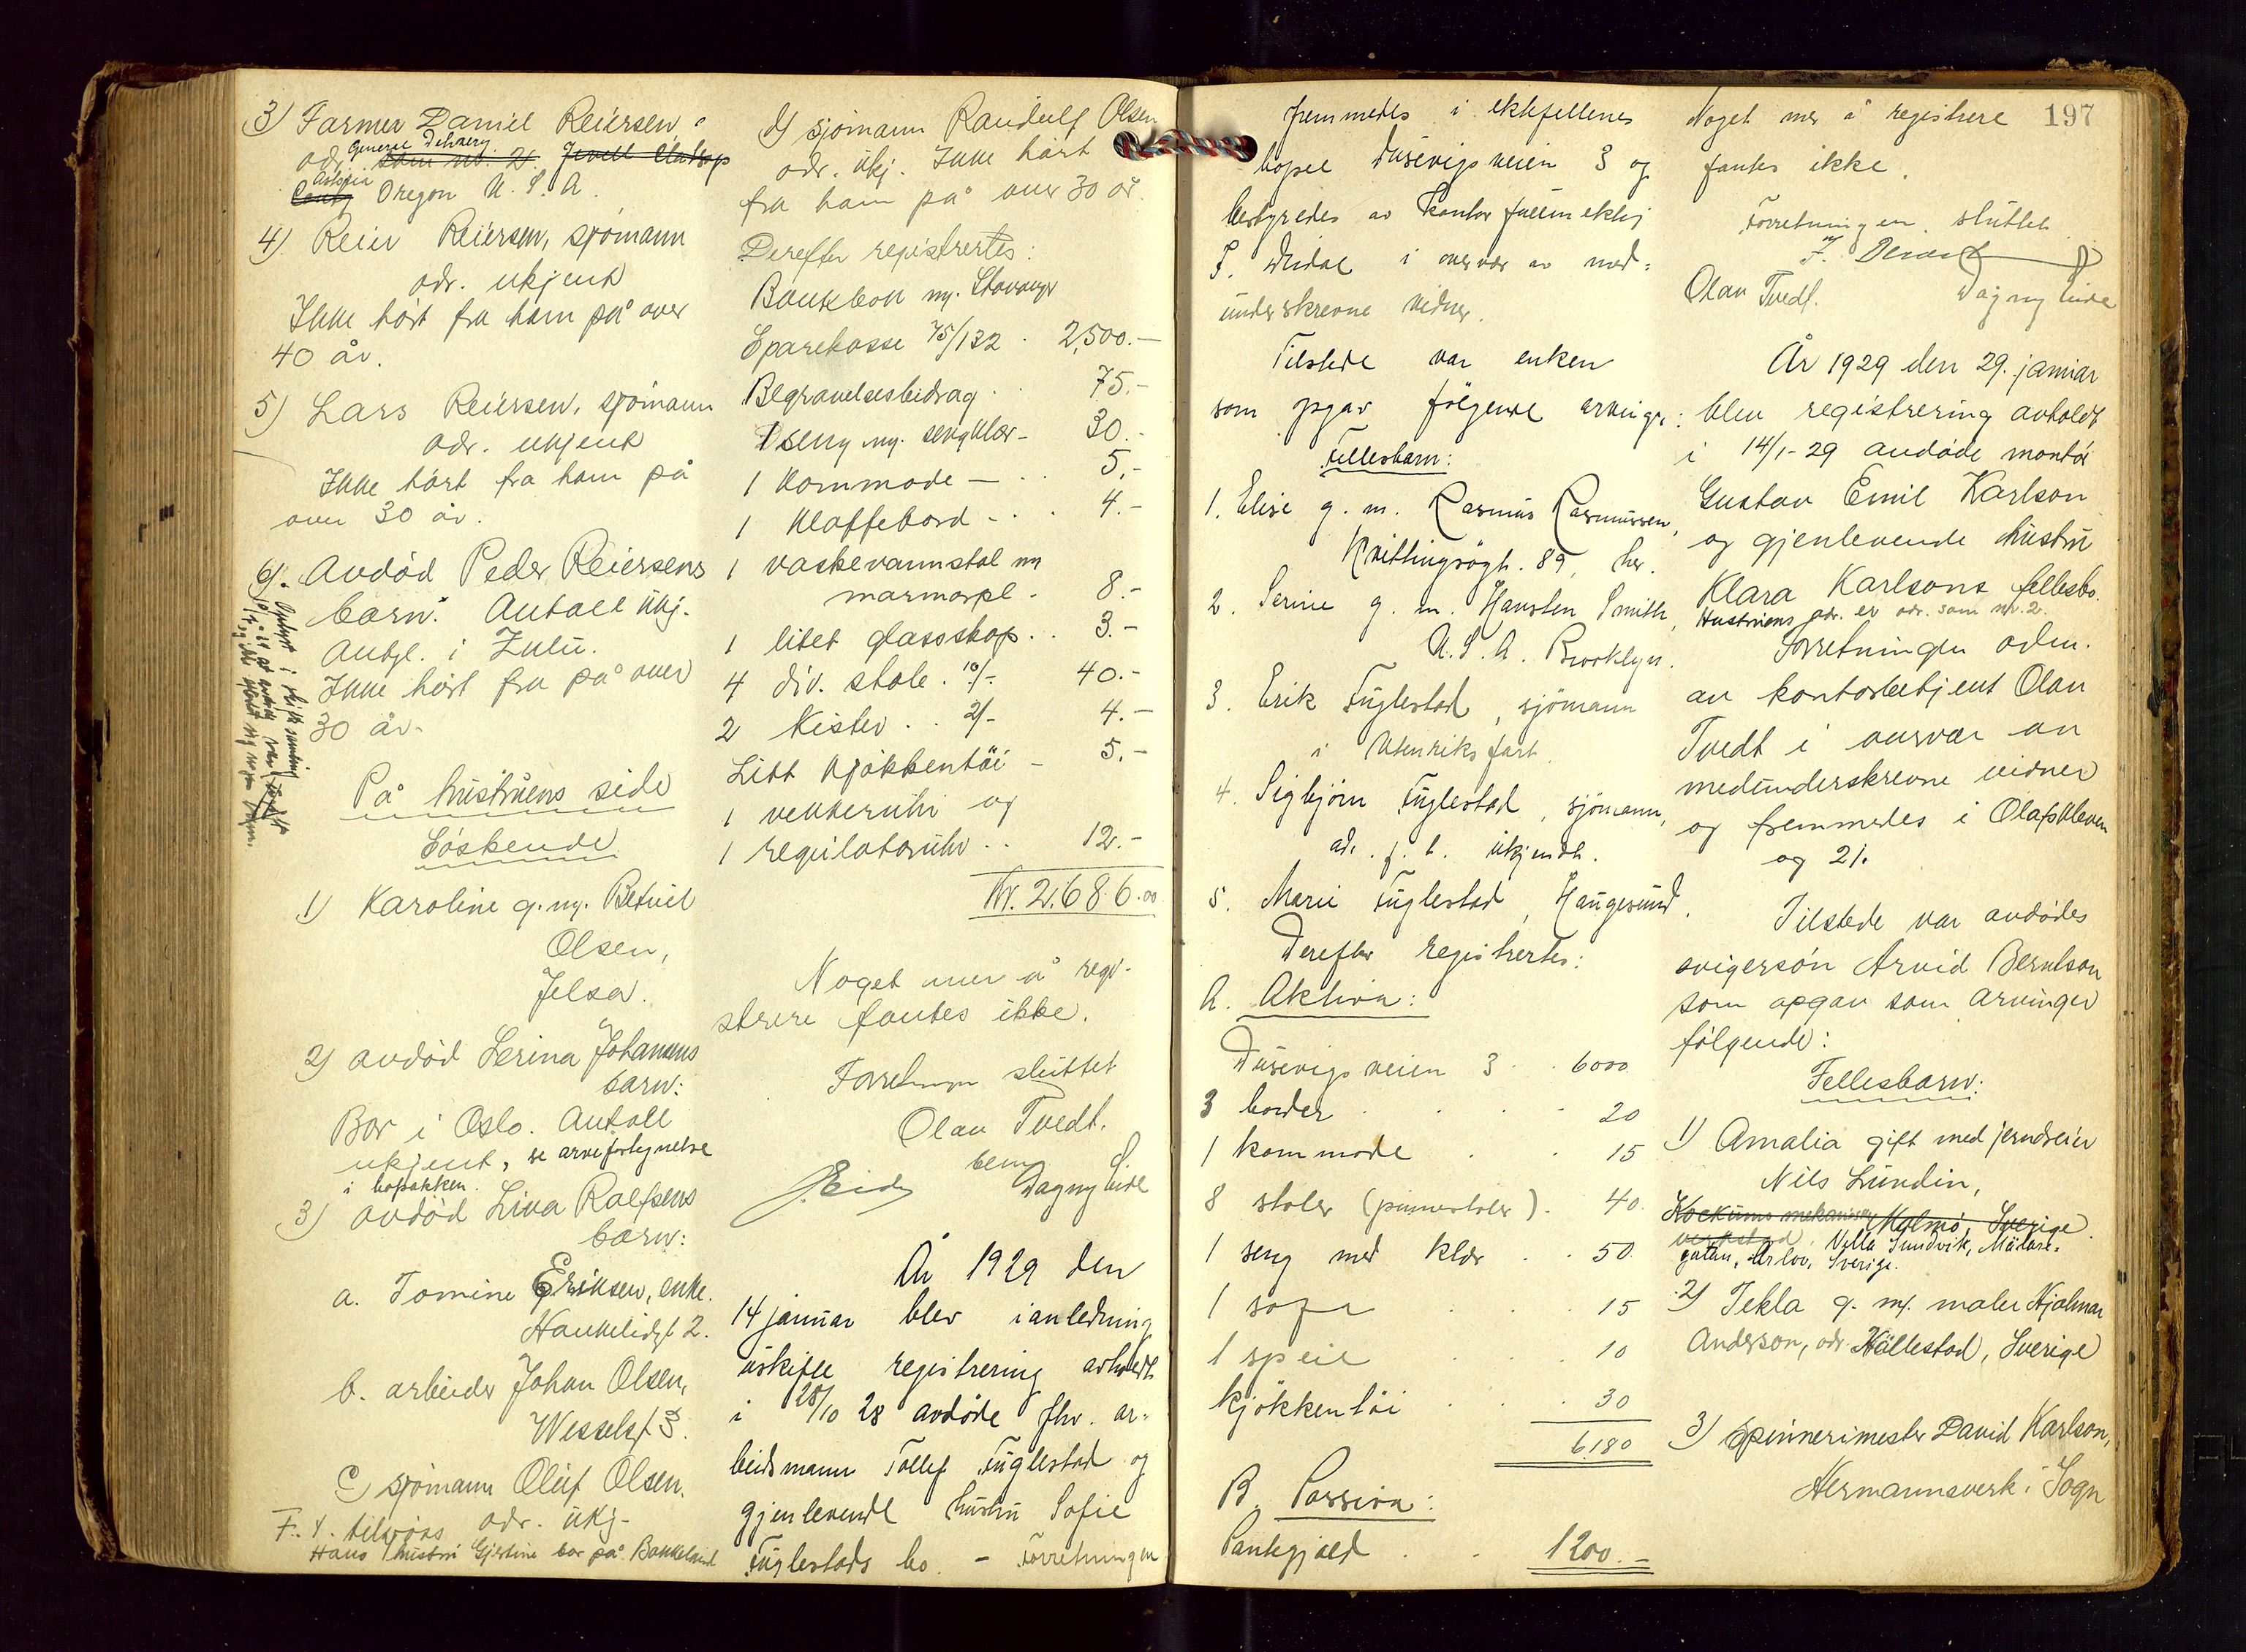 3) Farmer Daniel Reiersen,
General Delivery
adr. sam nr. 2. Jevell Clatsop
Astoria
County Oregon U. S. A.
4) Reier Reiersen, sjømann
adr. ukjent
Ikke hørt fra ham på over
40 år.
5) Lars Reiersen, sjømann
adr. ukjent
Ikke hørt fra ham på
over 30 år.
6). Avdød Peder Reiersens
barn. Antall ukj.
Antgl. i Zulu.
Ikke hørt fra på over
30 år.
På hustruens side
Søskende
1) Karoline g. m. Betuel
Olsen,
Jelsa.
2) avdød Serina Johansens
barn:
Bor i Oslo. Antall
ukjent, se arvefortegnelse
i bopakken.
3) avdød Lina Ralfsens
barn:
a. Tomine Eriksen, enke.
Haukeligt 2.
b. arbeider Johan Olsen,
Wesselsgt 3.
c) sjømann Oluf Olsen.
F. t. tilsjøs adr. ukj.
Hans hustru Gjertine bor på Bakkeland
d) sjømann Randulf Olsen
adr. ukj. Ikke hørt
fra ham på over 30 år.
Derefter registrertes:
Bankbok m. Stavanger
Sparekasse 75/132 . 2,500.-
Begravelsesbidrag . . 75.-
1 seng m. sengklær - 30.-
1 kommode - . . 5.-
1 klaffebord - . . 4.-
1 vaskevannstol m
marmorpl. - 8.-
1 litet glassskap . . 3.-
4 div. stole . 10/- 40.-
2 kister . . 2/- 4.-
Litt kjøkkentøi - 5.-
1 vekkeruhr og
1 regulatoruhr . . 12.-
Kr. 2.686.00
Noget mer å regi-
strere fantes ikke.
Forretningen sluttet
Olav Tvedt.
bem.
J. Eide Dagny Eide
År 1929 den
14 januar blev i anledning
uskifte registrering avholdt
i 28/10 28 avdøde fhv. ar-
beidsmann Tollef Fuglestad og
gjenlevende hustru Sofie
Fuglestads bo. - Forretningen
fremmedes i ektefellenes
bopel Dusevigsveien 3 og
bestyredes av kontorfullmektig
i overvær av med-
underskrevne vidner.
Tilstede var enken
som opgav følgende arvinger:
Fellesbarn:
1. Elise g. m. Rasmus Rasmussen,
Kvittingsøgt. 89, her.
2. Serine g. m. Hansten Smith,
U. S. A. Brooklyn.
3. Erik Fuglestad, sjømann
i utenriksfart.
4. Sigbjørn Fuglestad, sjømann,
adr. f. t. ukjendt.
5. Marie Fuglestad, Haugesund.
Derefter registrertes:
A. Aktiva:
Dusevigsveien 3 . . 6000
3 border . . . . 20
1 kommode . . 15
8 stoler (pinnestoler) . 40.
1 seng med klær . . 50
1 sofa . . . . 15
1 speil . . . . 10
kjøkkentøi . . . 30
6180
B. Passiva:
Pantegjæld . . 1200.-
197
Noget mer å registrere
fantes ikke.
Forretningen sluttet
Olav Tvedt. Dagny Eide
År 1929 den 29. januar
blev registrering avholdt
i 14/1-29 avdøde montør
Gustav Emil Karlson
og gjenlevende hustru
Klara Karlsons fellesbo.
Hustruens adr. er adr. som nr. 2.
Forretningen adm.
av kontorbetjent Olav
Tvedt i overvær av
medunderskrevne vidner
og fremmedes i Olafskleven
og 21.
Tilstede var avdødes
svigersøn Arvid Berntson
som opgav som arvinger
følgende:
Fellesbarn:
1) Amalia gift med jerndreier
Nils Lundin,
Kockums mekaniska Malmø, Sverige.
verkstad. Villa Sundvik, Mälare-
gatan, Arlov, Sverige.
2) Tekla g. m. maler Hjalmar
Anderson, adr. Hällestad, Sverige
3) Spinnerimester David Karlson,
Hermannsverk i Sogn